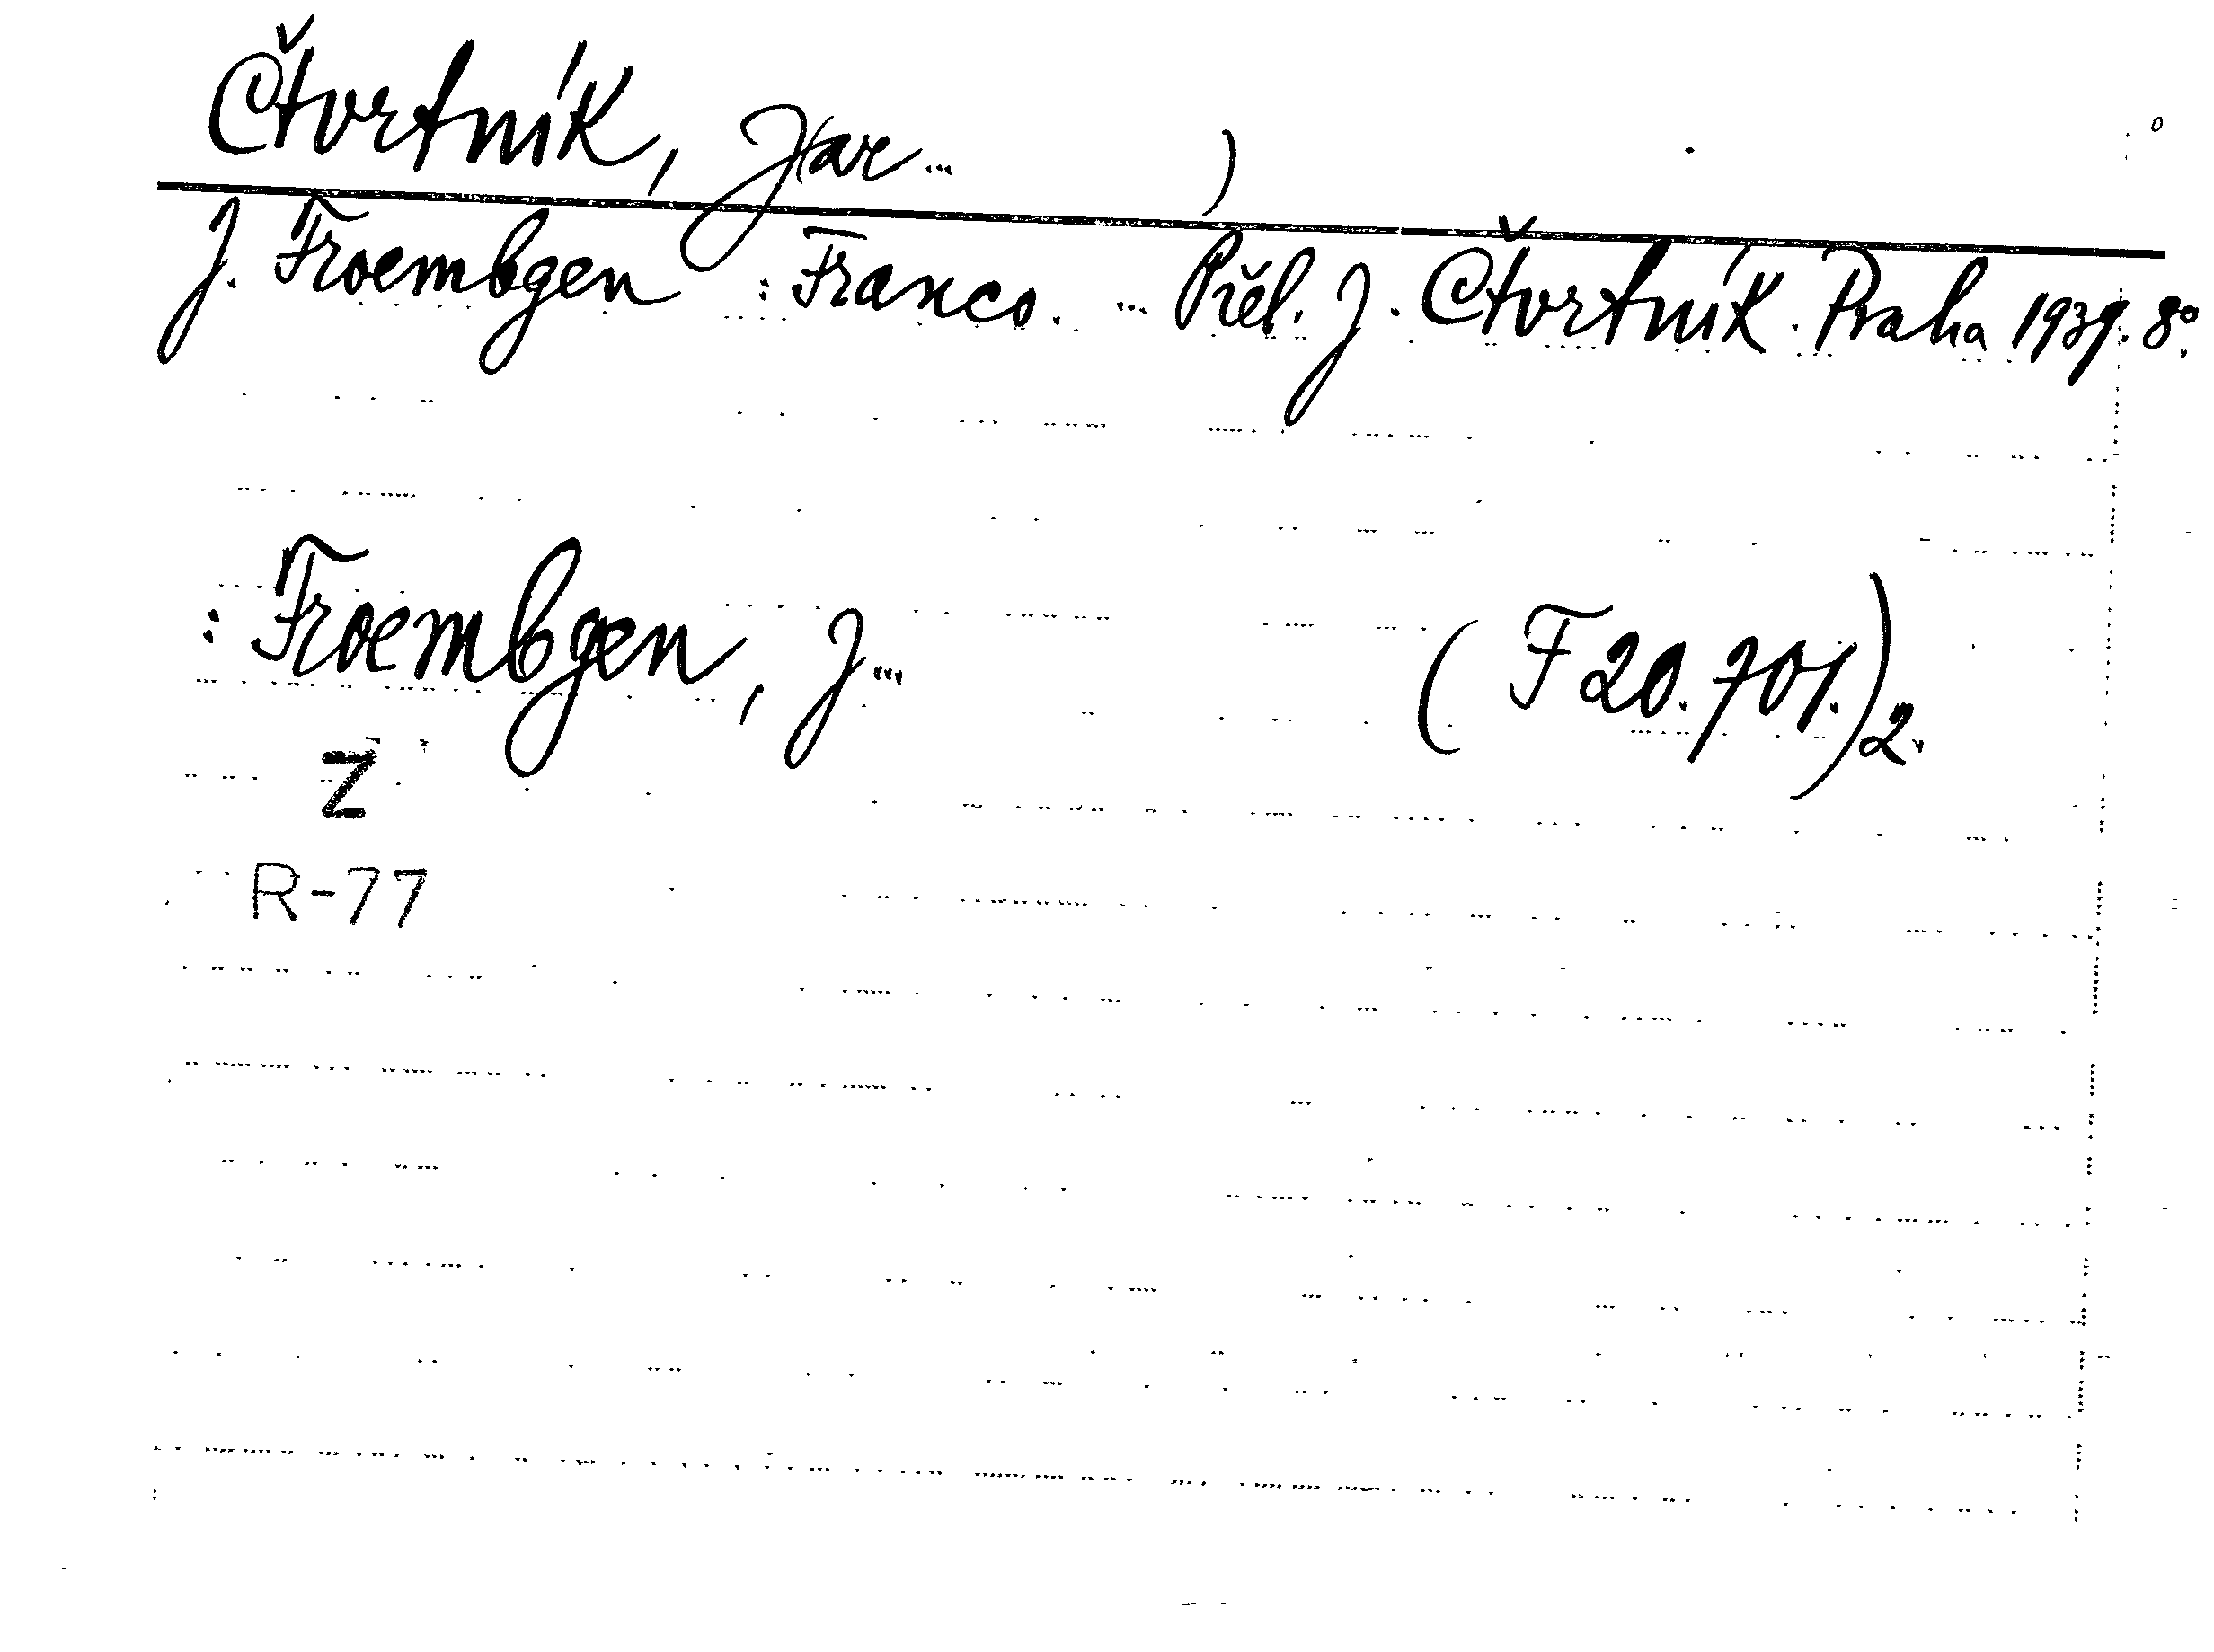 Čtvrtník, Jar... )
J. Froembgen : Franco. ... Přel. J. Čtvrtník. Praha 1939. 8°.
: Froembgen, J... (F 20.701.)2.
Z
R-77